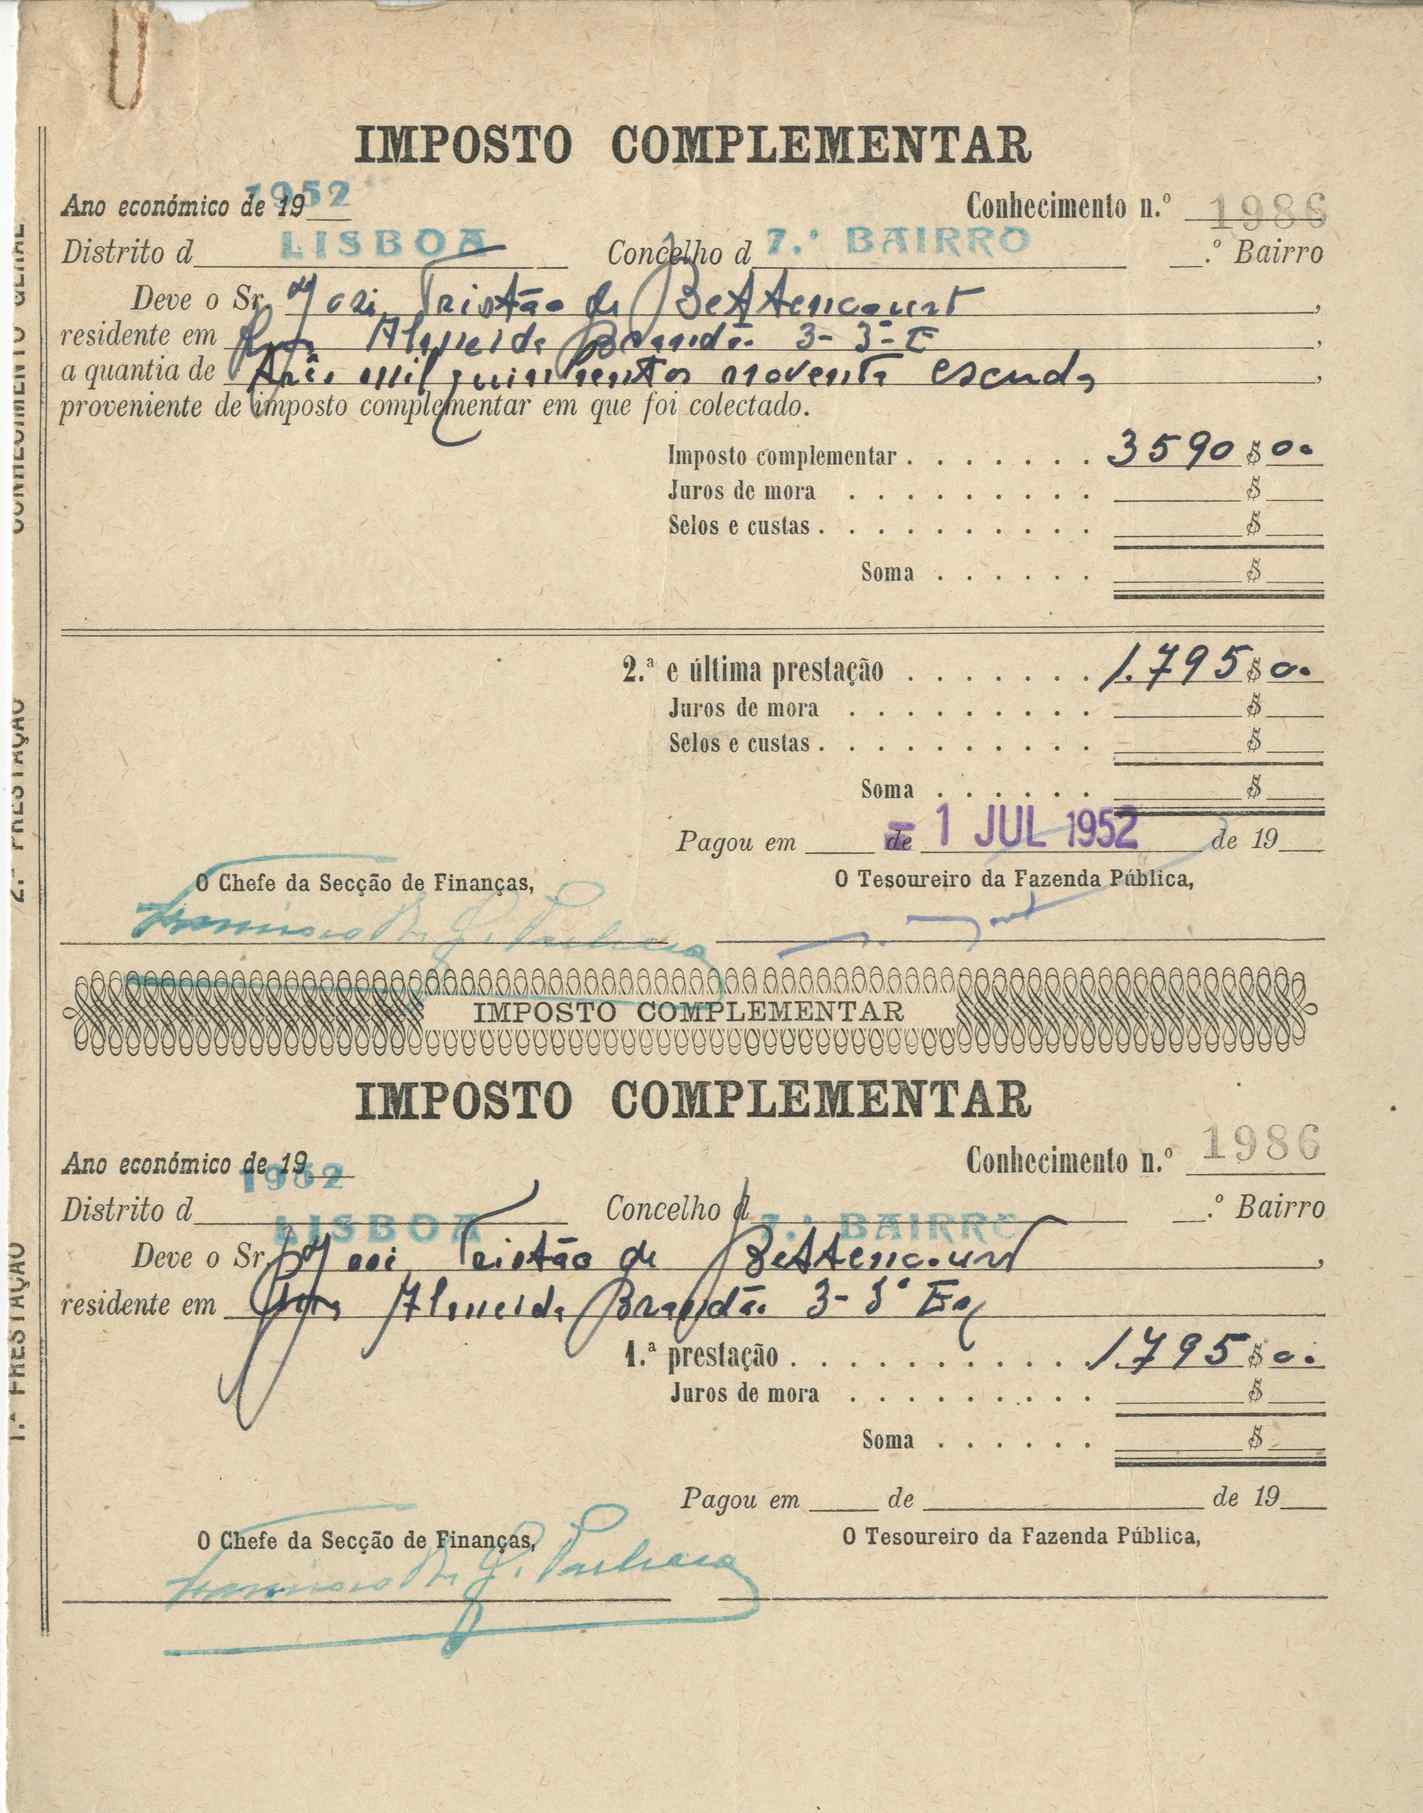 IMPOSTO COMPLEMENTAR
Ano económico de 19 1952 Conhecimento n.º 1986
Distrito d LISBOA Concelho d 7.º BAIRRO .º Bairro
Deve o Sr. José Tristão de Bettencourt,
residente em Rua Almeida Brandão 3-3º E,
a quantia de três mil quinhentos noventa escudos,
proveniente de imposto complementar em que foi colectado.
Imposto complementar . . . . . . . 3590$00
Juros de mora . . . . . . . . . $
Selos e custas . . . . . . . . . . $
Soma . . . . . . $
2.ª e última prestação . . . . . . . 1.795$00
Juros de mora . . . . . . . . . $
Selos e custas . . . . . . . . . . $
Soma . . . . . . $
Pagou em de - 1 JUL 1952 de 19
O Chefe da Secção de Finanças, O Tesoureiro da Fazenda Pública,
IMPOSTO COMPLEMENTAR
IMPOSTO COMPLEMENTAR
Ano económico de 19 1952 Conhecimento n.º 1986
Distrito d LISBOA Concelho d 7.º BAIRRO .º Bairro
Deve o Sr. José Tristão de Bettencourt,
residente em Rua Almeida Brandão 3-3º Eq
1.ª prestação . . . . . . . . . . 1.795$00
Juros de mora . . . . . . . . . $
Soma . . . . . . $
Pagou em de de 19
O Chefe da Secção de Finanças, O Tesoureiro da Fazenda Pública,
CONHECIMENTO GERAL
2.ª PRESTAÇÃO
1.ª PRESTAÇÃO